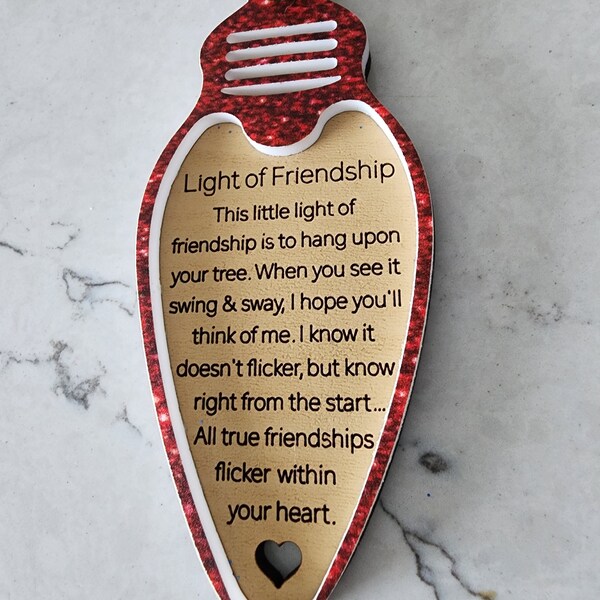 Light of Friendship
This little light of
friendship is to hang upon
your tree. When you see it
swing & sway, I hope you'll
think of me. I know it
doesn't flicker, but know
right from the start...
All true friendships
flicker within
your heart.